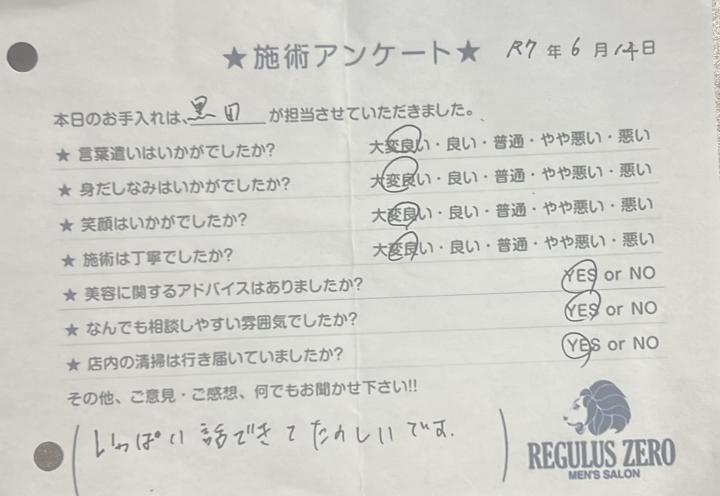 ★施術アンケート★ R7年6月14日
本日のお手入れは、黒田が担当させていただきました。
★ 言葉遣いはいかがでしたか? 大変良い・良い・普通・やや悪い・悪い
★ 身だしなみはいかがでしたか? 大変良い・良い・普通・やや悪い・悪い
★ 笑顔はいかがでしたか? 大変良い・良い・普通・やや悪い・悪い
★ 施術は丁寧でしたか? 大変良い・良い・普通・やや悪い・悪い
★ 美容に関するアドバイスはありましたか? YES or NO
★ なんでも相談しやすい雰囲気でしたか? YES or NO
★ 店内の清掃は行き届いていましたか? YES or NO
その他、ご意見・ご感想、何でもお聞かせ下さい!!
いっぱい話できてたのしいです.
REGULUS ZERO
MEN'S SALON